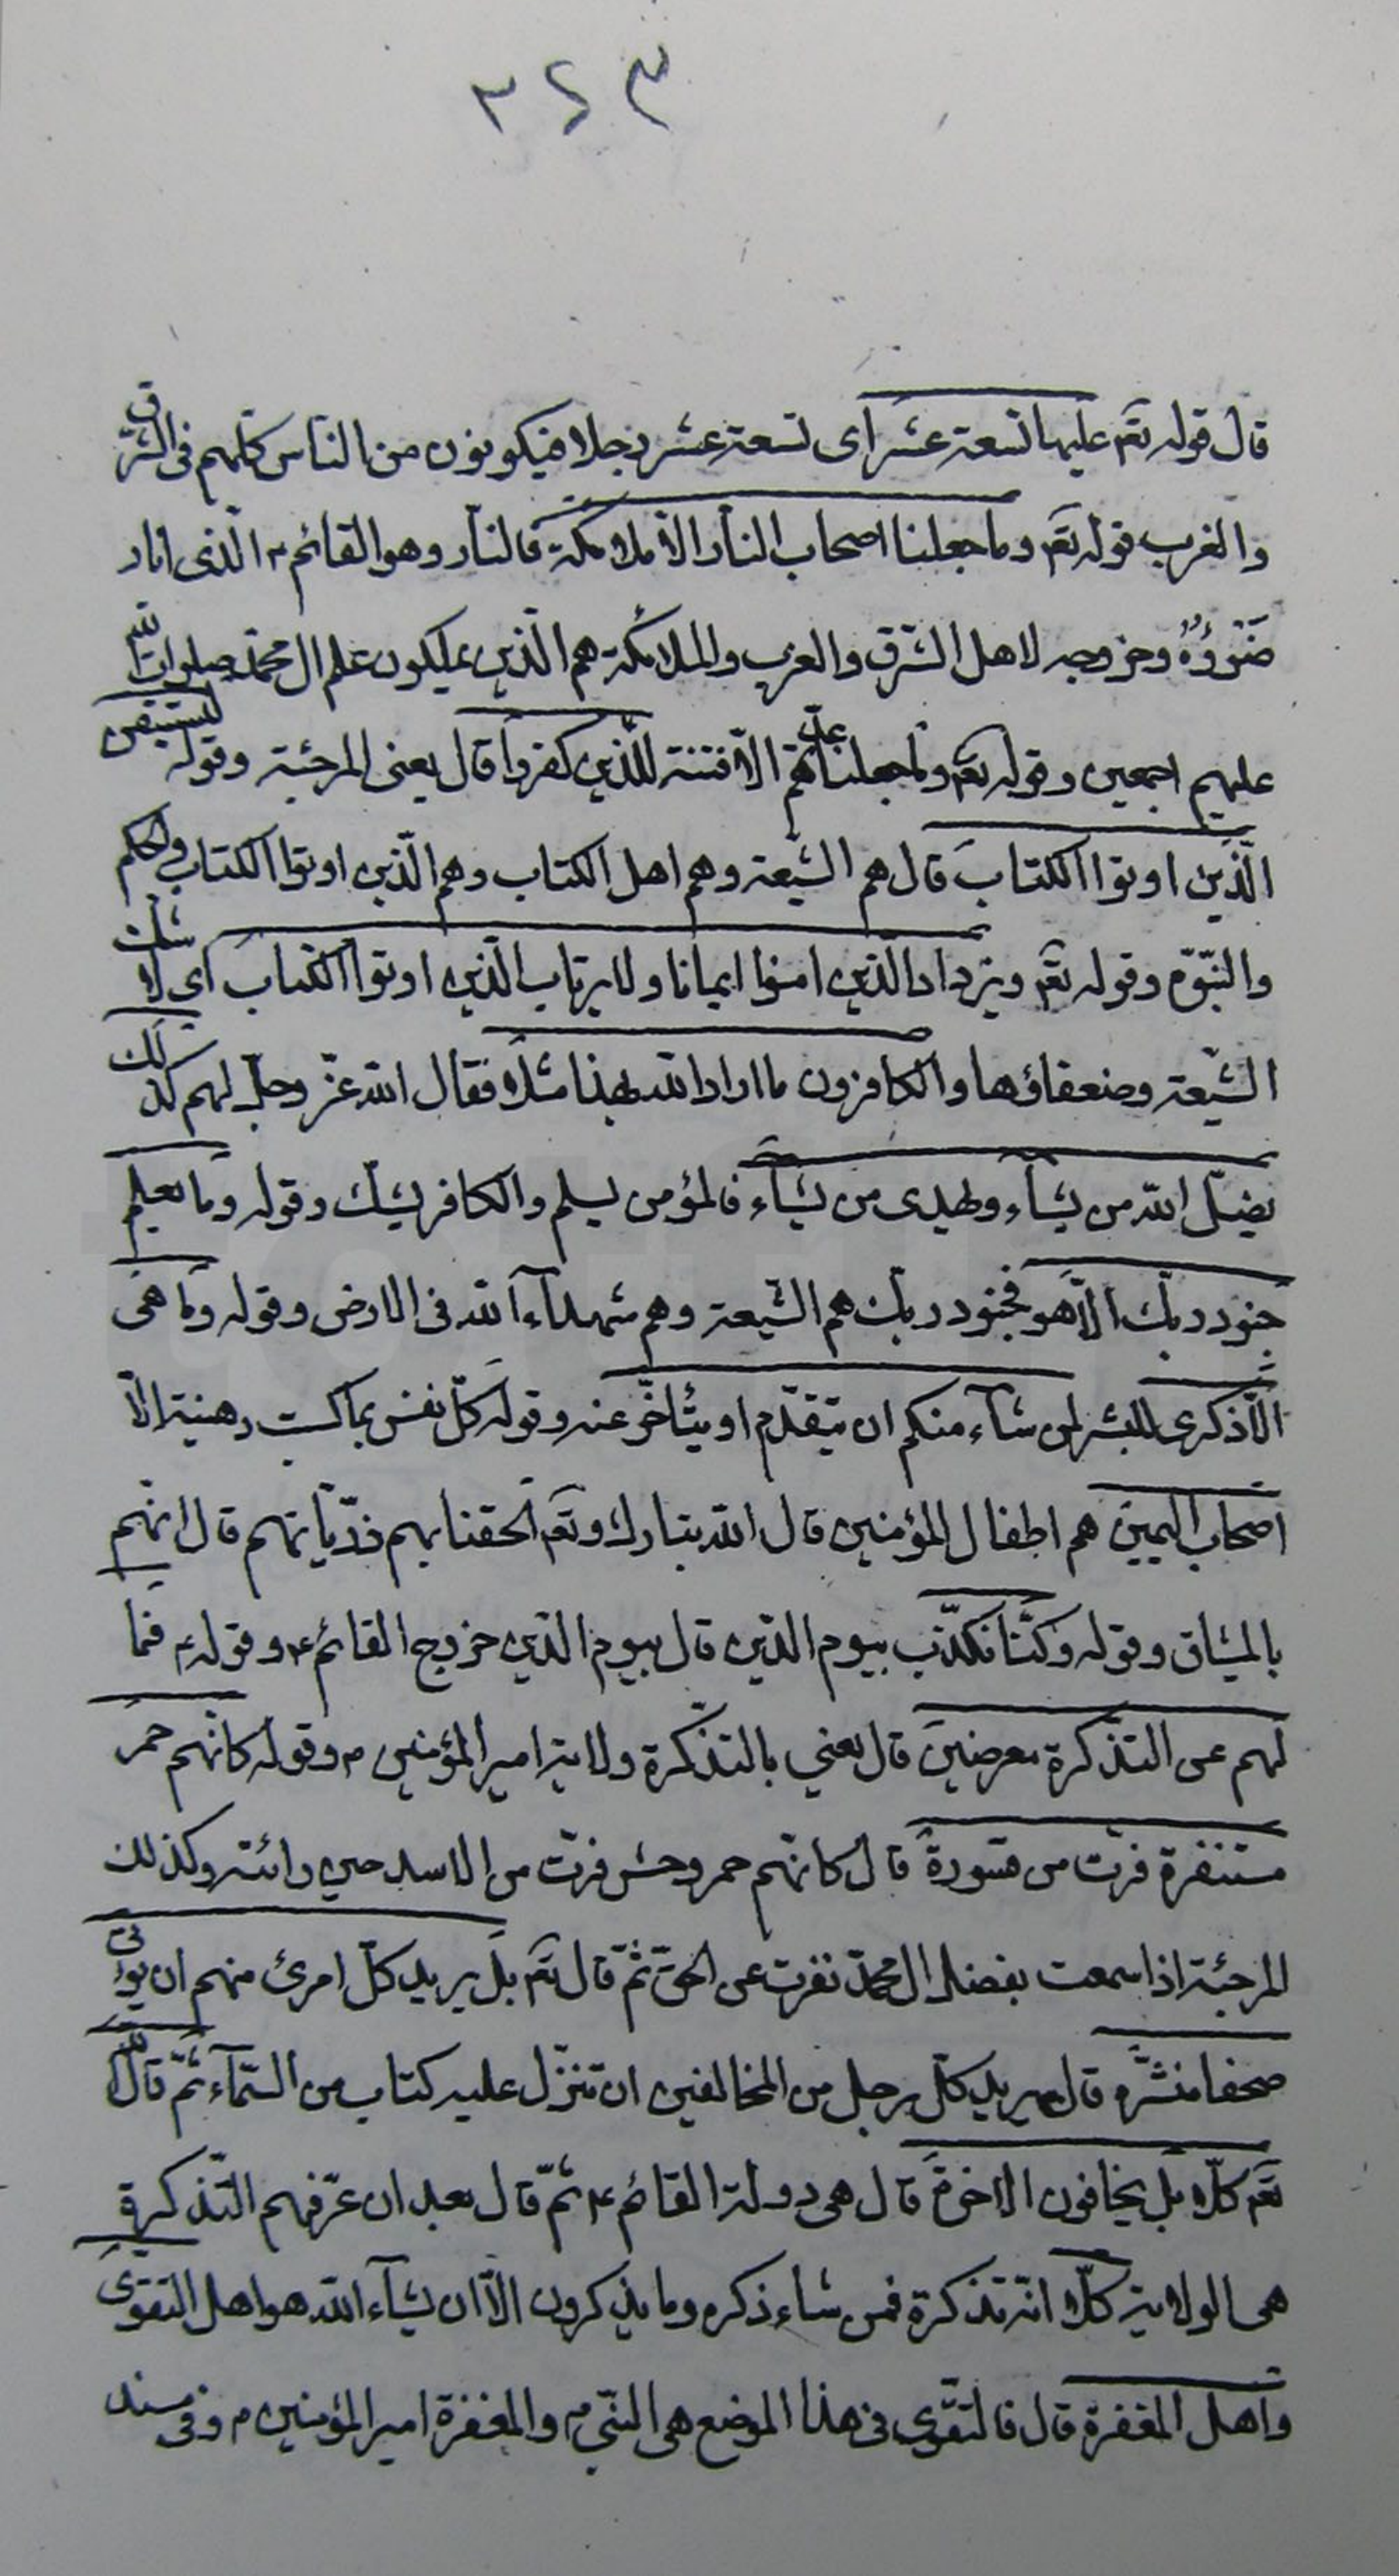 ٣٤٢
قال قوله تعم عليها تسعة عشر اى تسعة عشر رجلا فيكونون من الناس كلهم فى الشرق
والغرب قوله تعم وما جعلنا اصحاب النار الّا ملائكة فالنار وهو القائم ع الّذى انار
ضوؤه وخروجه لاهل الشرق والغرب والملائكة هم الّذين يملكون علم ال محمد صلوات الله
عليهم اجمعين وقوله تعم وما جعلنا عدتهم الّا فتنة للّذين كفروا قال يعنى المرجئة وقوله ليستيقن
الّذين اوتوا الكتاب قال هم الشيعة وهم اهل الكتاب وهم الّذين اوتوا الكتاب والحكم
والنبوّة وقوله تعم ويزداد الّذين امنوا ايمانا ولا يرتاب الّذين اوتوا الكتاب اى لا يشك
الشيعة وضعفاؤها والكافرون ما اراد الله بهذا مثلا فقال الله عزّ وجلّ لهم كذلك
يضلّ الله من يشآء ويهدى من يشآء فالمؤمن يسلم والكافر يشك وقوله وما يعلم
جنود ربّك الّا هو فجنود ربك هم الشيعة وهم شهدآء الله فى الارض وقوله وما هى
الّا ذكرى للبشر لمن شآء منكم ان يتقدّم او يتأخّر عنه وقوله كلّ نفس بما كسبت رهينة الّا
اصحاب اليمين هم اطفال المؤمنين قال الله تبارك وتعم الحقنا بهم ذرّياتهم قال انهم
بالميثاق وقوله وكنّا نكذّب بيوم الدّين قال بيوم الدّين خروج القائم ع وقوله فما
لهم عن التذكرة معرضين قال يعني بالتذكرة ولاية امير المؤمنين ع وقوله كانهم حمر
مستنفرة فرّت من قسورة قال كانهم حمر وحش فرّت من الاسد حين رائته وكذلك
المرجئة اذا سمعت بفضل ال محمد نفرت عن الحق ثمّ قال تعم بل يريد كلّ امرئ منهم ان يؤتى
صحفا منشّرة قال يريد كلّ رجل من المخالفين ان تنزّل عليه كتاب من السّمآء ثمّ قال الله
تعم كلّا بل يخافون الاخرة قال هى دولة القائم ع ثمّ قال بعد ان عرّفهم التّذكرة
هى الولاية كلّا انّه تذكرة فمن شاء ذكره وما يذكرون الّا ان يشآء الله هو اهل التقوى
واهل المغفرة قال فالتقوى فى هذا الموضع هى النبّى ص والمغفرة امير المؤمنين ع وفى مسند